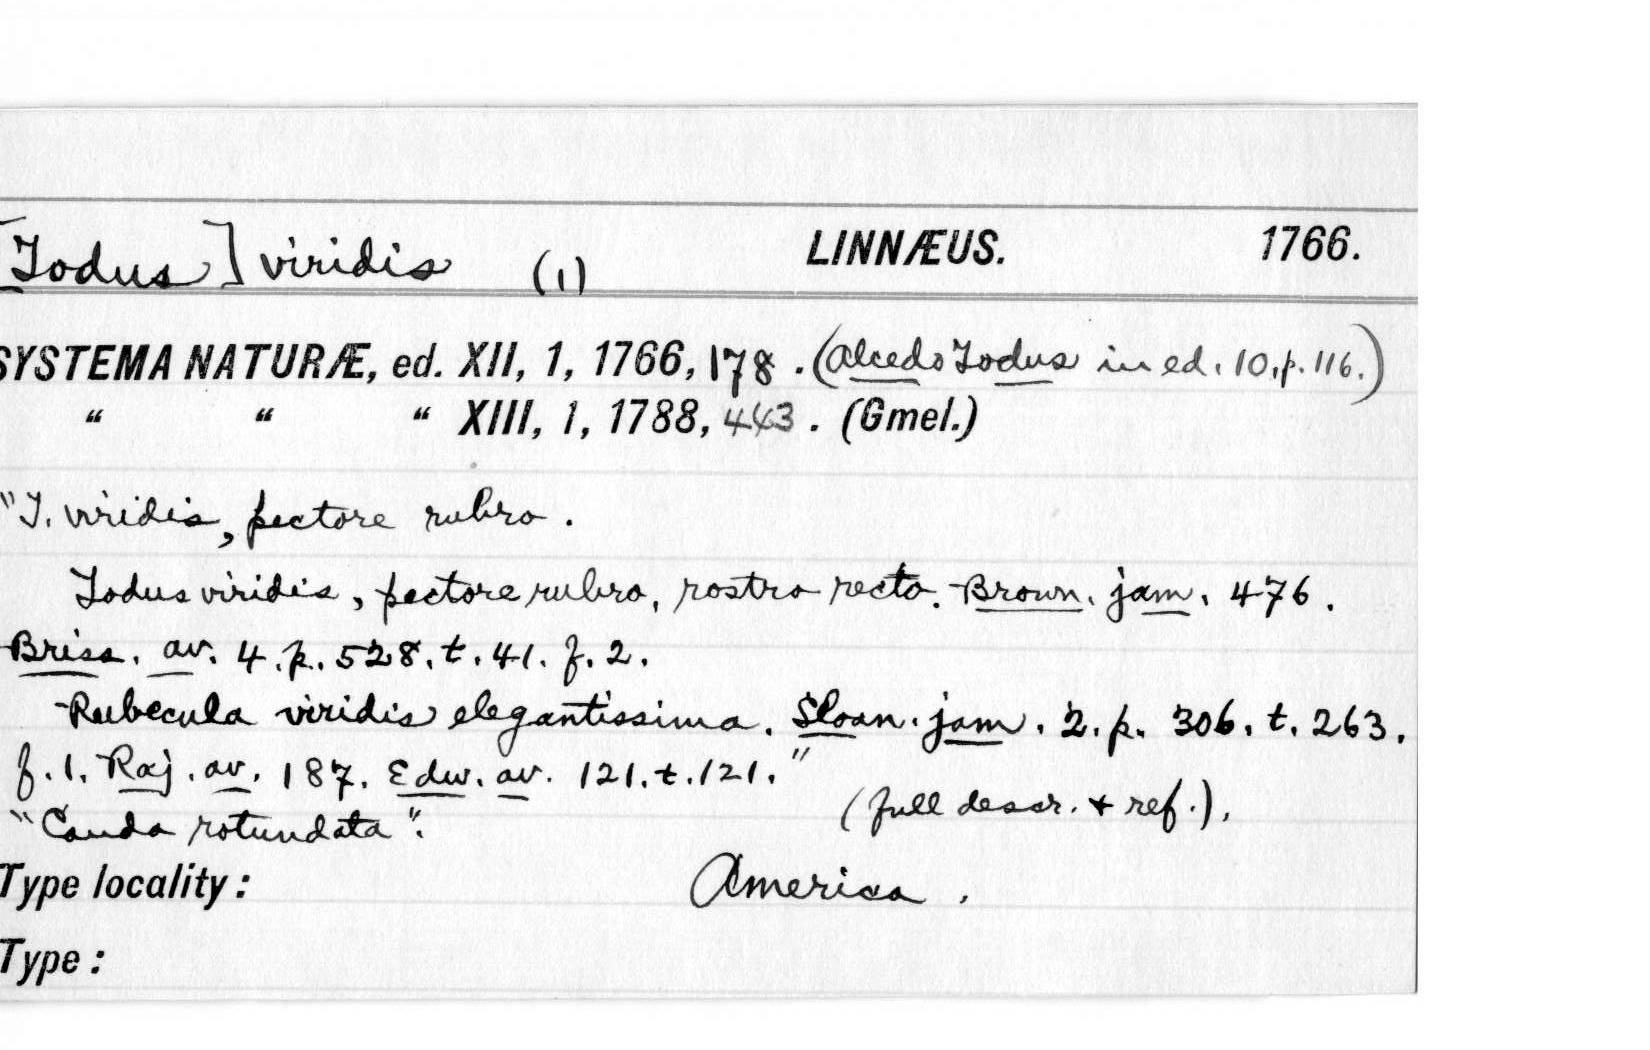 [Todus] viridis (1) LINNÆUS. 1766.
SYSTEMA NATURÆ, ed. XII, 1, 1766, 178. (Alcedo Todus in ed. 10, p. 116.)
“ “ “ XIII, 1, 1788, 443. (Gmel.)
"T. viridis, pectore rubro.
Todus viridis, pectore rubro, rostro recto. Brown. jam. 476.
Briss. av. 4. p. 528. t. 41. f. 2.
Rubecula viridis elegantissima. Sloan. jam. 2. p. 306. t. 263.
f. 1. Raj. av. 187. Edw. av. 121. t. 121."
(full descr. & ref.).
"Cauda rotundata".
Type locality: America.
Type: